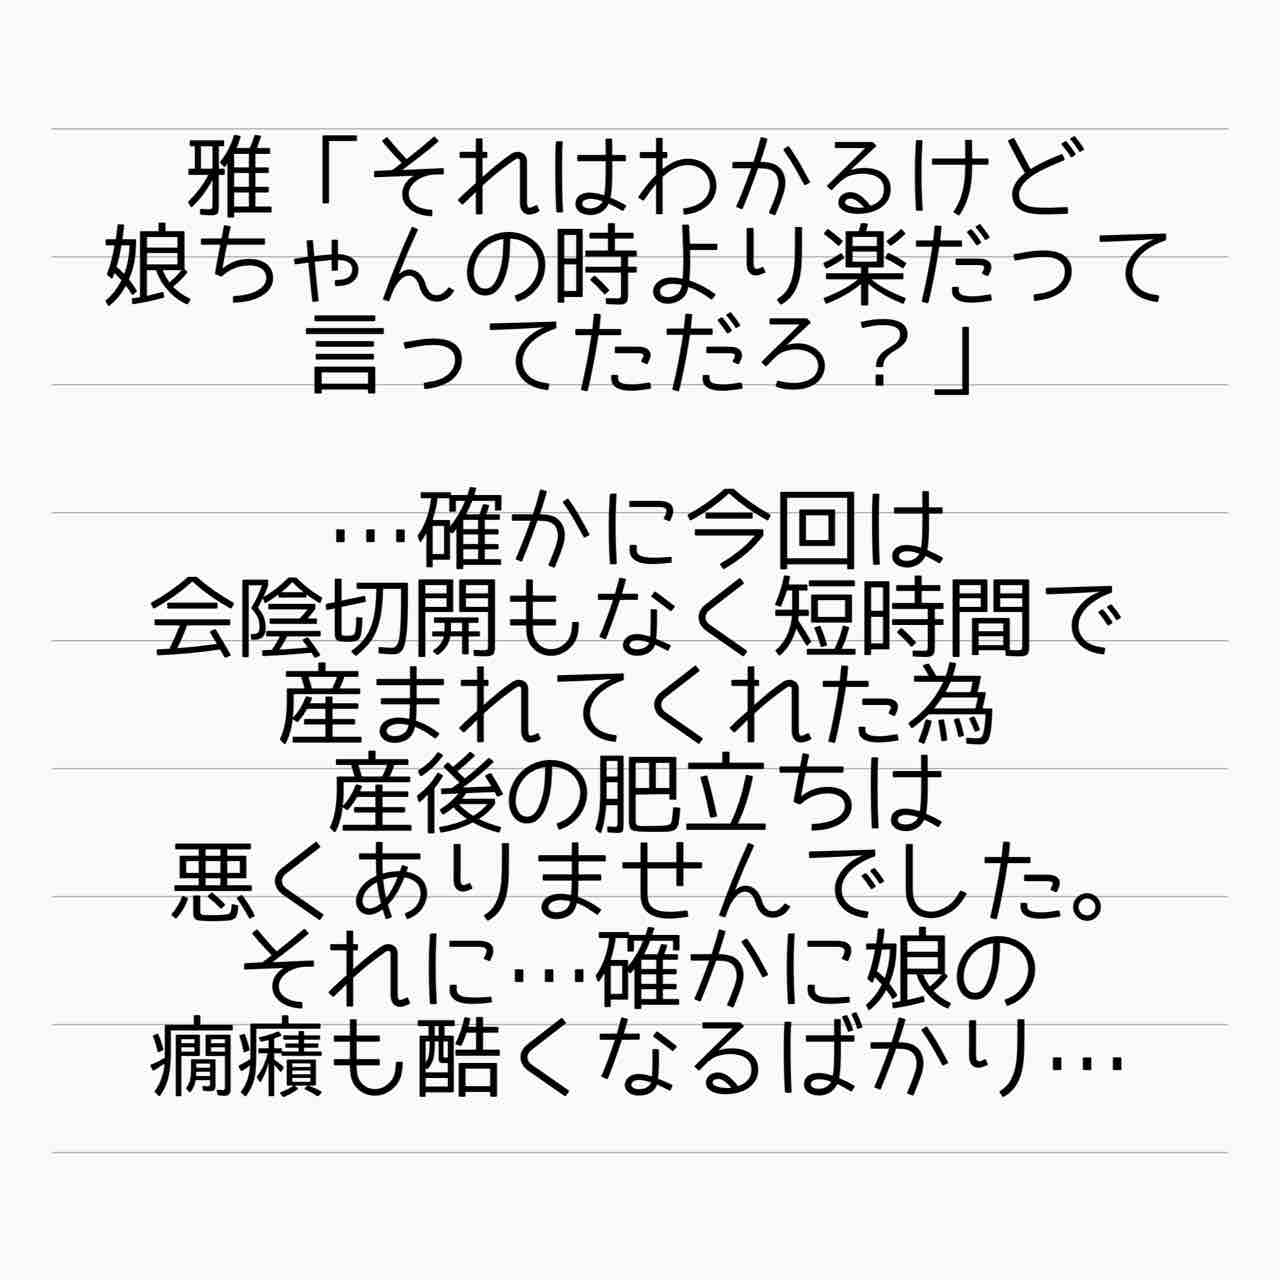 雅「それはわかるけど
娘ちゃんの時より楽だって
言ってただろ？」
…確かに今回は
会陰切開もなく短時間で
産まれてくれた為
産後の肥立ちは
悪くありませんでした。
それに…確かに娘の
癇癪も酷くなるばかり…